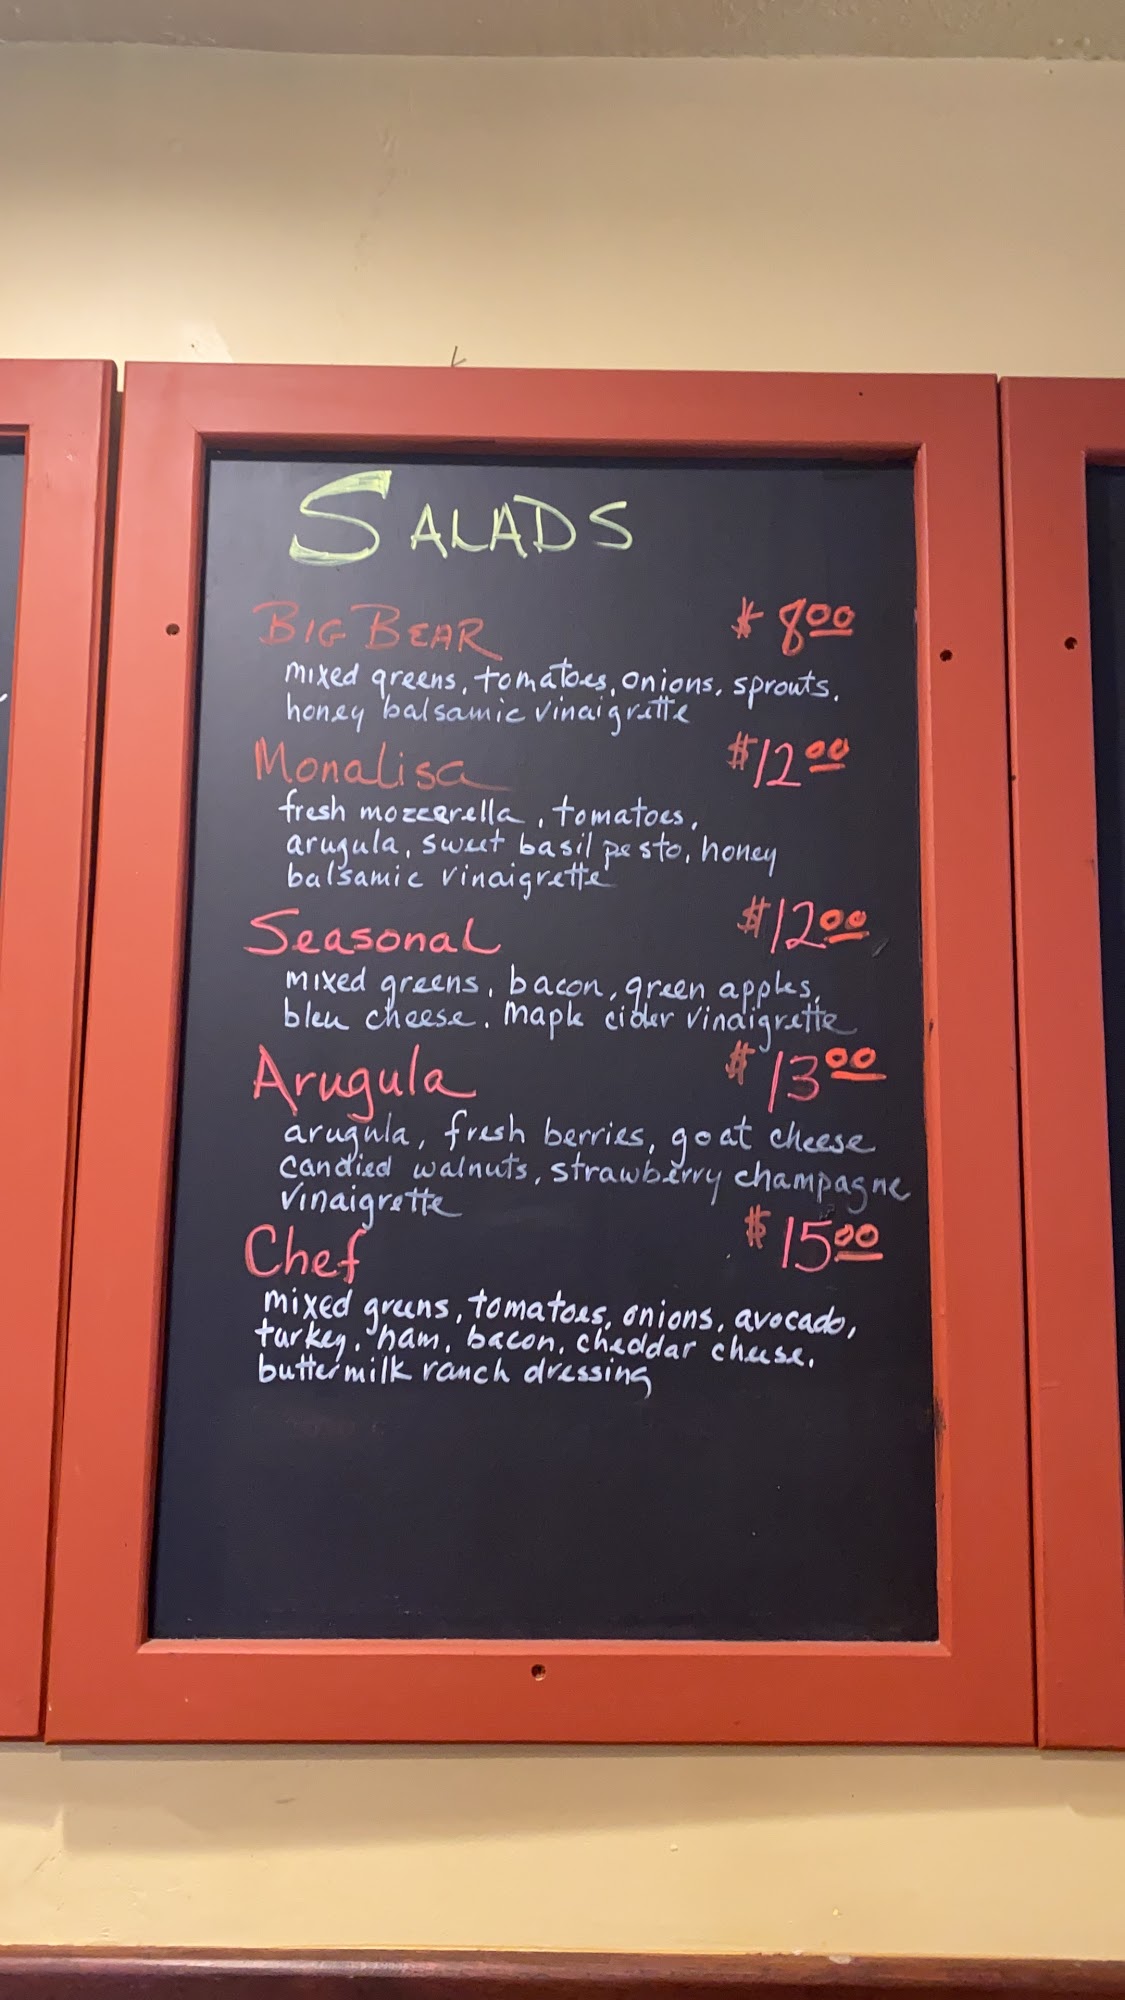 SALADS
BIG BEAR $8.00
mixed greens, tomatoes, onions, sprouts,
honey balsamic vinaigrette
Monalisa $12.00
fresh mozzarella, tomatoes,
arugula, sweet basil pesto, honey
balsamic vinaigrette
Seasonal $12.00
mixed greens, bacon, green apples,
bleu cheese, maple cider vinaigrette
Arugula $13.00
arugula, fresh berries, goat cheese
candied walnuts, strawberry champagne
vinaigrette
Chef $15.00
mixed greens, tomatoes, onions, avocado,
turkey, ham, bacon, cheddar cheese,
buttermilk ranch dressing